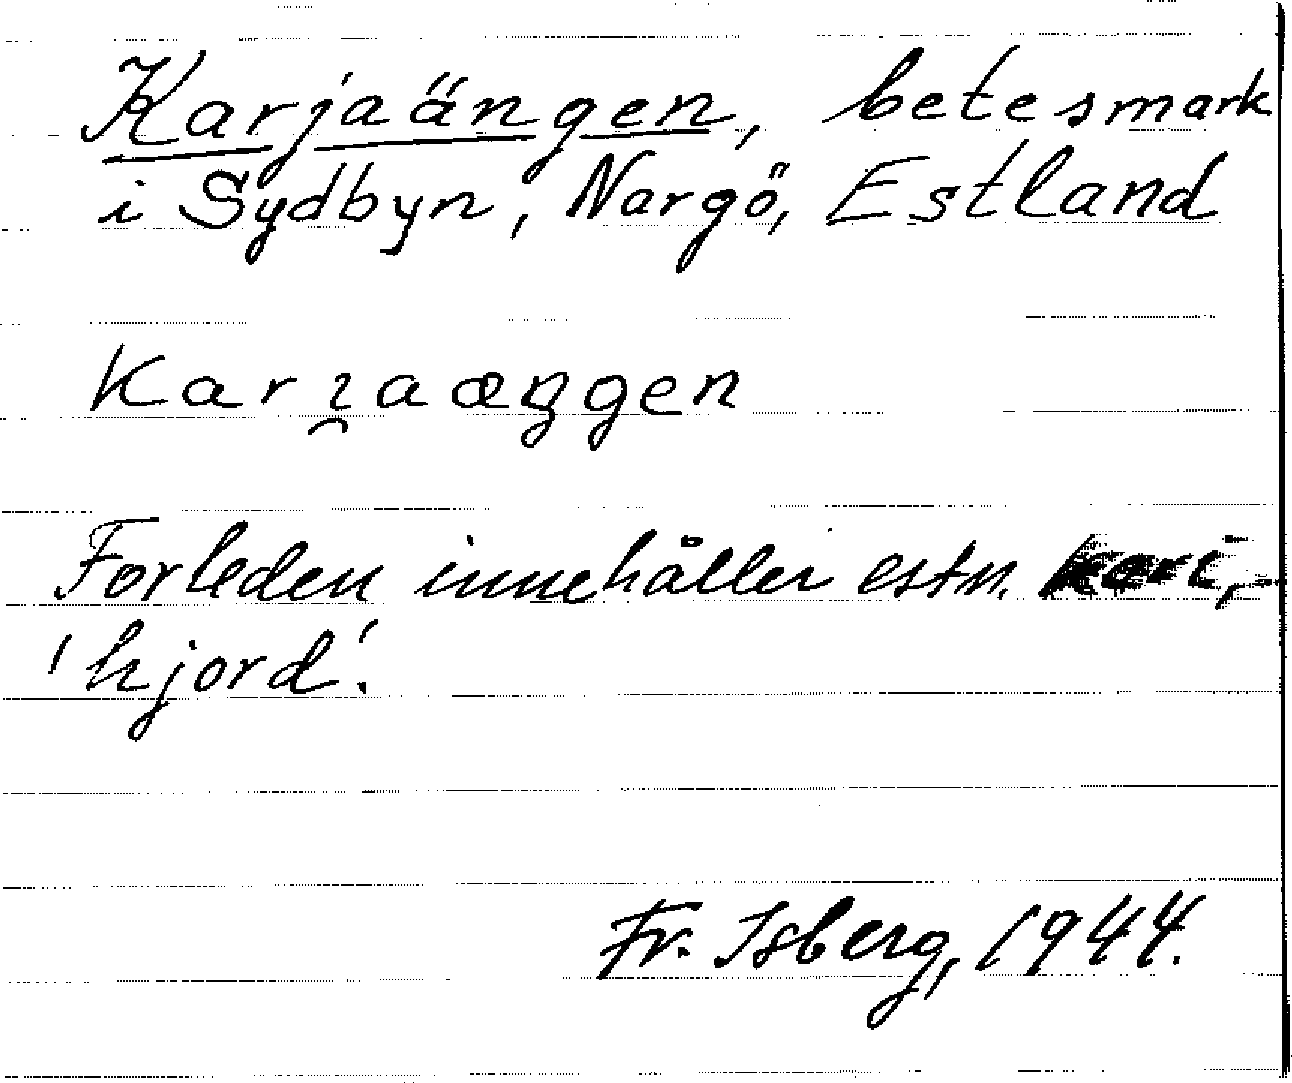 Karjaängen, betesmark
i Sydbyn, Nargö, Estland
Karı̯aæŋgen
Forleden innehåller estn. kari,
'hjord'.
Fr. Isberg, 1944.